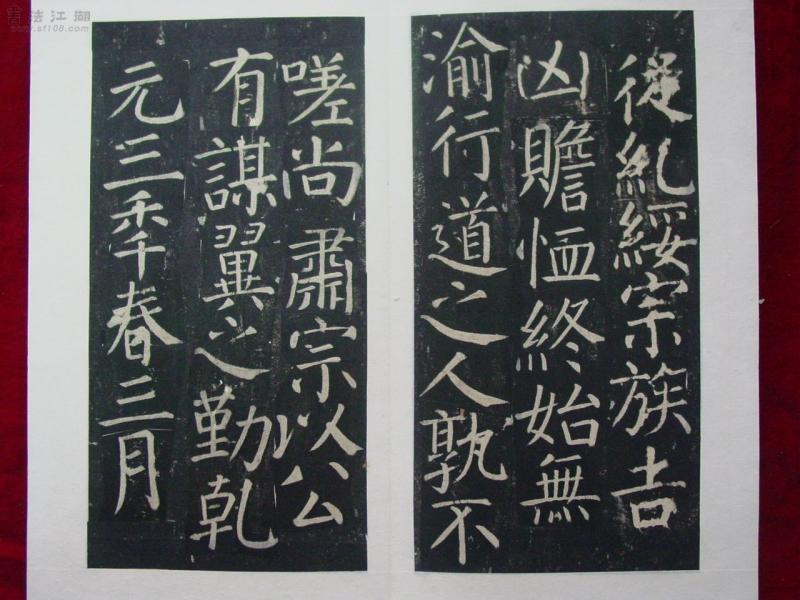 從乱綏宗族吉
凶贍恤終始無
渝行道之人孰不
嗟尚肅宗以公
有謀翼之勤乾
元三秊春三月
書法江湖
www.sf108.com